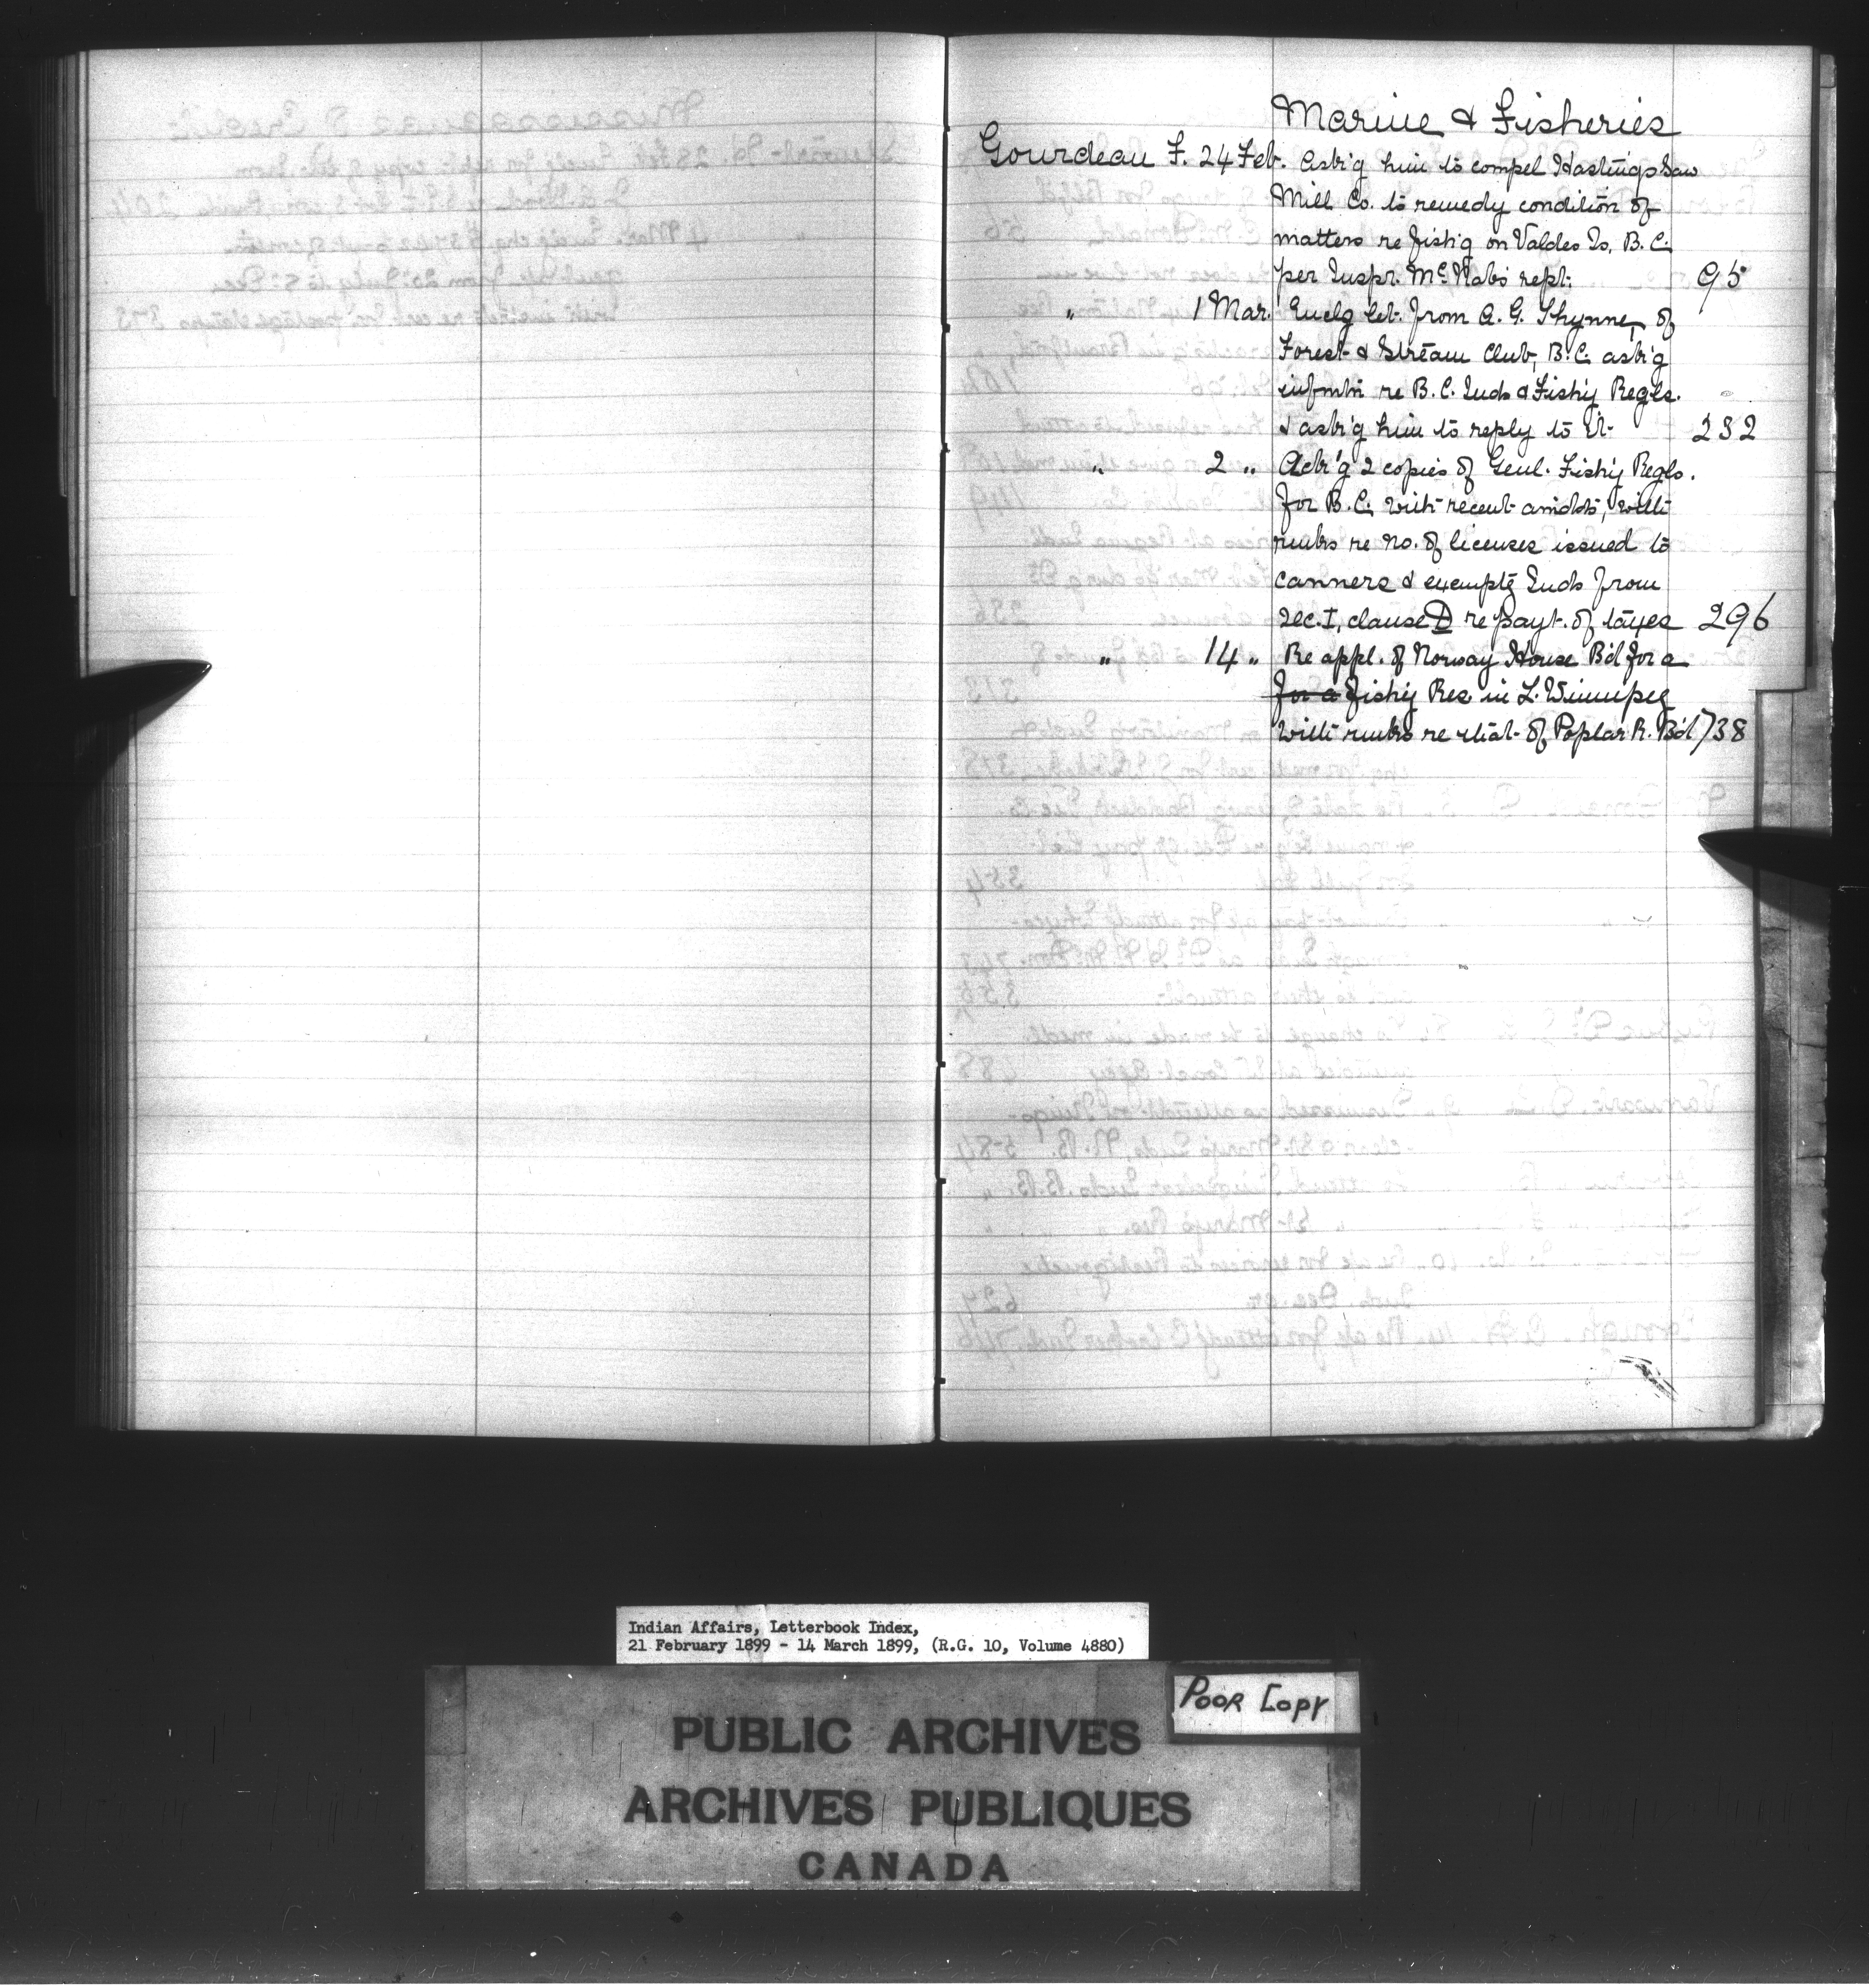 Marine & Fisheries
Gourdeau F. 24 Feb. Ask'g him to compel Hastings Saw
Mill Co. to remedy condition of
matters re fish'g on Valdes Is. B.C.
per Inspr. McNab's rept. 95
" 1 Mar. Enclg let. from A. G. Thynne, of
Forest & Stream Club, B.C. ask'g
infmtn re B.C. Inds & Fish'y Regls.
& ask'g him to reply to it 232
" 2 " Ack'g 2 copies of Genl. Fish'y Regls.
for B.C. with recent amdts, with
rmks re no. of licenses issued to
canners & exemptg Inds from
sec. I, clause D re payt. of taxes 296
" 14 " Re appl. of Norway House B'd for a
for a fish'y Res in L. Winnipeg
with rmks re that of Poplar R. B'd 738
Indian Affairs, Letterbook Index,
21 February 1899 - 14 March 1899, (R.G. 10, Volume 4880)
POOR COPY
PUBLIC ARCHIVES
ARCHIVES PUBLIQUES
CANADA